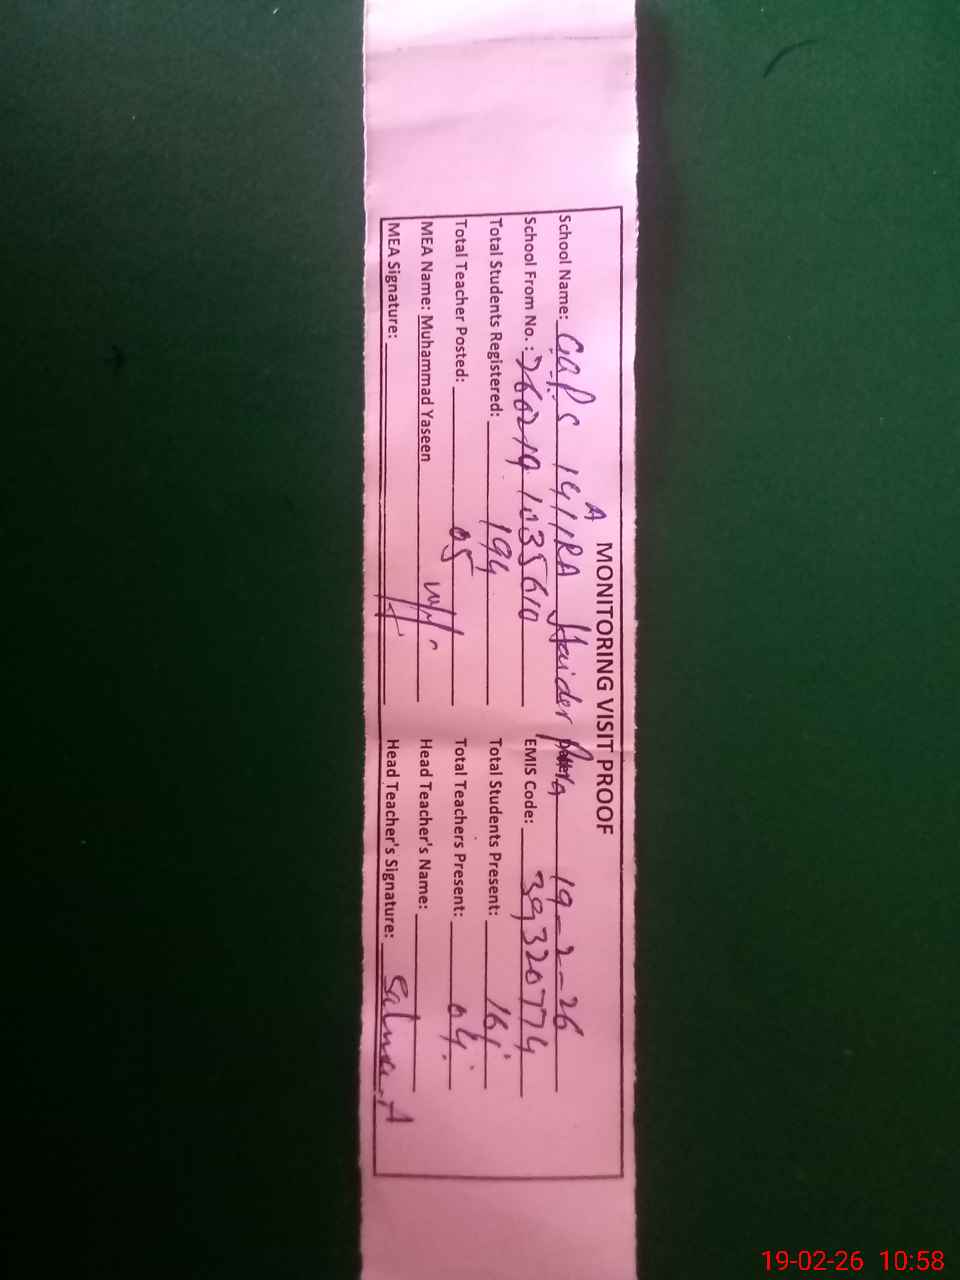 MONITORING VISIT PROOF
A
School Name: GGPS 19/1RA Haider 19-2-26
School From No.: 260219 1035610 EMIS Code: 39320774
Total Students Registered: 194 Total Students Present: 161
Total Teacher Posted: 05 Total Teachers Present: 04
MEA Name: Muhammad Yaseen Head Teacher's Name:
MEA Signature: Head Teacher's Signature: Salma. A
19-02-26 10:58